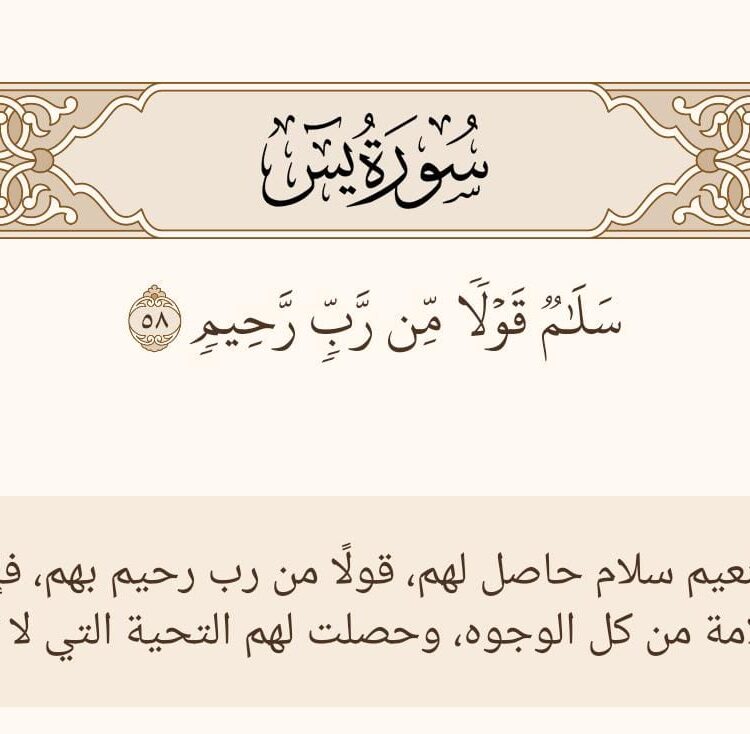 سُورَةُ يسٓ
سَلَٰمٌ قَوْلًا مِّن رَّبٍّ رَّحِيمٍ ٥٨
سلام حاصل لهم، قولًا من رب رحيم بهم،
من كل الوجوه، وحصلت لهم التحية التي لا